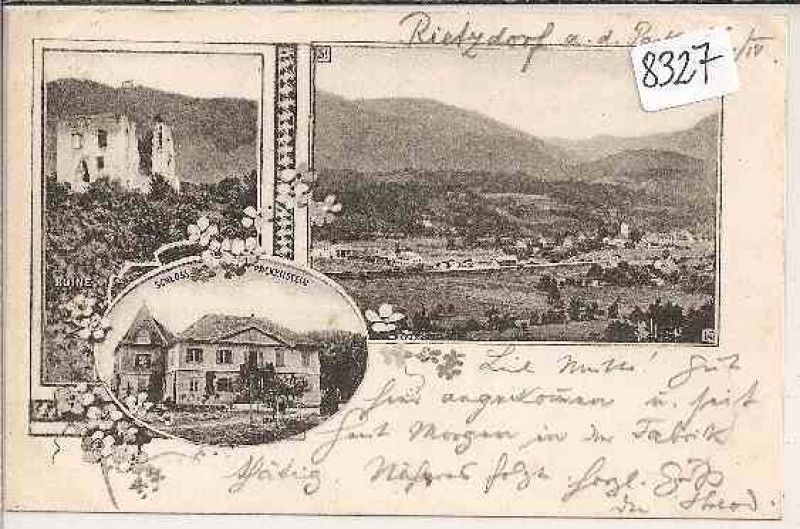 Rietzdorf a. d. /IV.
8327
RUINE
SCHLOSS PACKENSTEIN
Gut
hier angekommen u. seit
heut Morgen in der Fabrik
thätig. Näheres folgt. herzl. Gruß